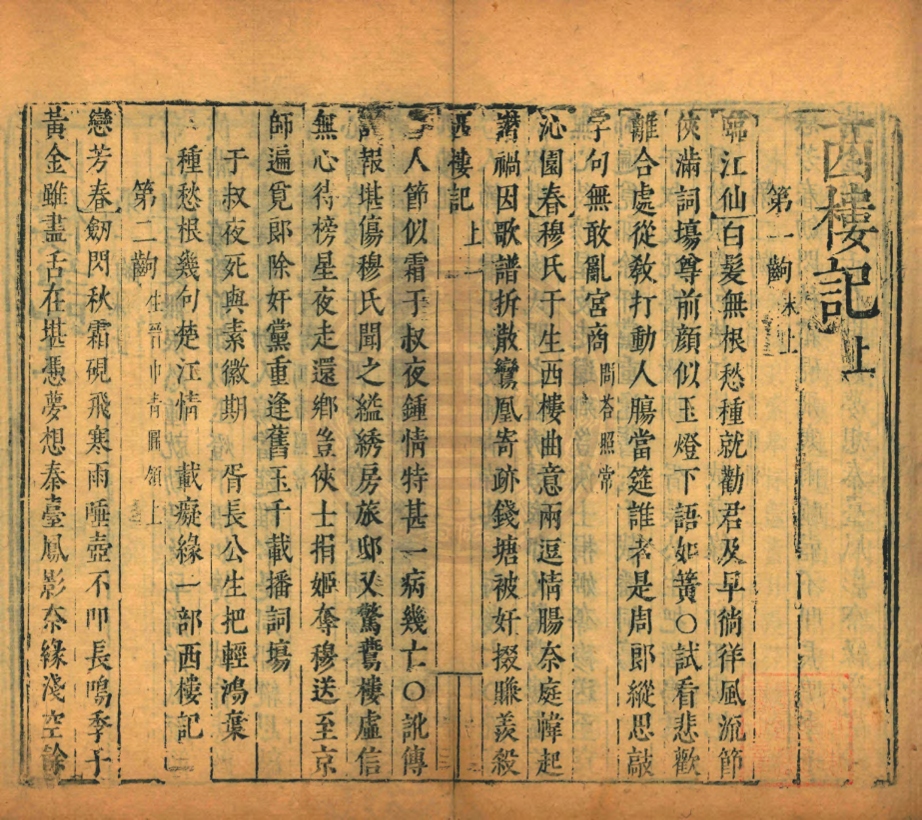 西樓記上
第一齣 末上
臨江仙 白髮無根愁種就勸君及早徜徉風流節
俠滿詞場尊前顔似玉燈下語如簧〇試看悲歡
離合處從教打動人腸當筵誰者是周郎縱思敲
字句無敢亂宮商 問荅照常
沁園春 穆氏于生西樓曲意兩逗情腸奈庭幃起
禍因歌譜拆散鸞鳳寄跡錢塘被奸掇賺羨殺
西樓記 上 一
人節似霜于叔夜鍾情特甚一病幾亡〇訛傳
報堪傷穆氏聞之縊綉房旅邸又驚鴦樓虛信
無心待榜星夜走還鄉豈俠士捐姬奪穆送至京
師遍覓郎除奸黨重逢舊玉千載播詞場
于叔夜死與素徽期 胥長公生把輕鴻棄
種愁根幾句楚江情 載癡緣一部西樓記
第二齣 生晉巾青圓領上
戀芳春 劒閃秋霜硯飛寒雨唾壺不叩長鳴季子
黃金雖盡舌在堪憑夢想秦臺鳳影奈緣淺空餘